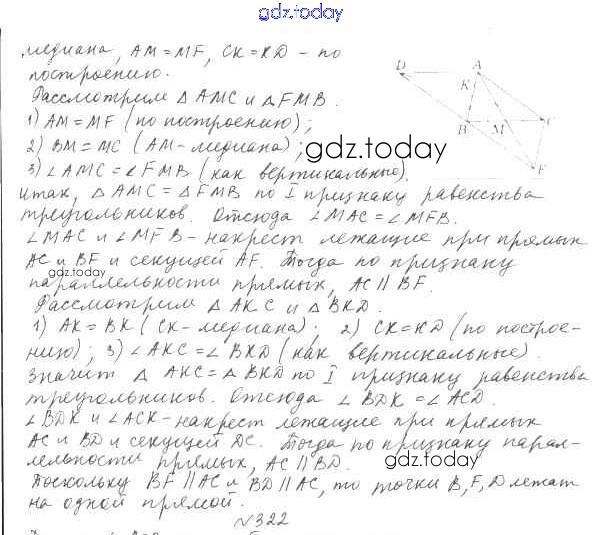 gdz.today
медиана, AM = MF, CK = KD – по
построению.
Рассмотрим △ AMC и △ FMB.
1) AM = MF (по построению);
2) BM = MC (AM - медиана);
3) ∠AMC = ∠FMB (как вертикальные).
Итак, △ AMC = △ FMB по I признаку равенства
треугольников. Отсюда ∠MAC = ∠MFB.
∠MAC и ∠MFB - накрест лежащие при прямых
AC и BF и секущей AF. Тогда по признаку
параллельности прямых, AC || BF.
Рассмотрим △ AKC и △ BKD.
1) AK = BK (CK - медиана); 2) CK = KD (по построе-
нию); 3) ∠AKC = ∠BKD (как вертикальные).
Значит △ AKC = △ BKD по I признаку равенства
треугольников. Отсюда ∠BDK = ∠ACD.
∠BDK и ∠ACK - накрест лежащие при прямых
AC и BD и секущей DC. Тогда по признаку парал-
лельности прямых, AC || BD.
Поскольку BF || AC и BD || AC, то точки B, F, D лежат
на одной прямой.
N 322
D
A
K
B
M
C
F
gdz.today
gdz.today
gdz.today